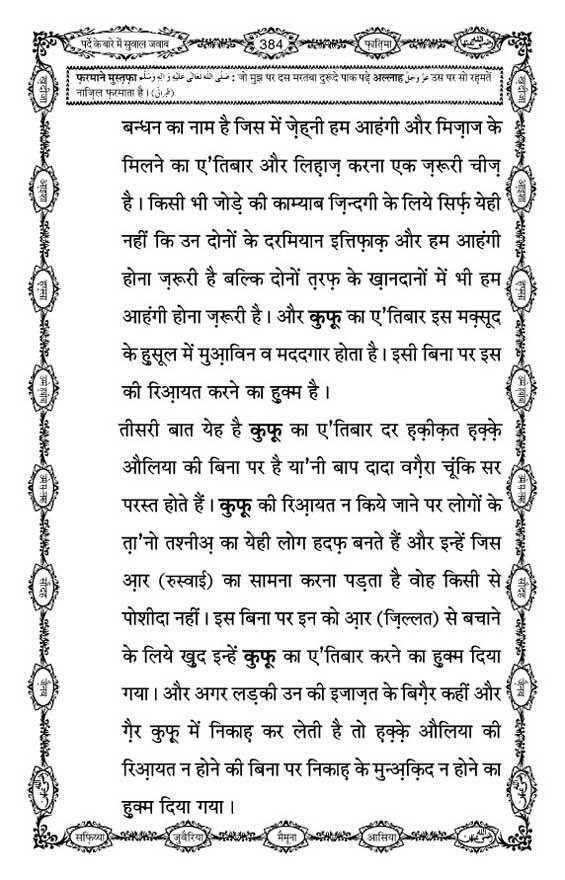 पर्दे के बारे में सुवाल जवाब
384
फ़ातिमा
फ़रमाने मुस्तफ़ा صَلَّى اللهُ تَعَالٰى عَلَيْهِ وَاٰلِهٖ وَسَلَّم : जो मुझ पर दस मरतबा दुरूदे पाक पढ़े अल्लाह عَزَّوَجَلَّ उस पर सो रहमतें
नाज़िल फ़रमाता है। (طبرانی)
बन्धन का नाम है जिस में ज़ेह्नी हम आहंगी और मिज़ाज के
मिलने का ए'तिबार और लिहाज़ करना एक ज़रूरी चीज़
है। किसी भी जोड़े की काम्याब ज़िन्दगी के लिये सिर्फ़ येही
नहीं कि उन दोनों के दरमियान इत्तिफ़ाक़ और हम आहंगी
होना ज़रूरी है बल्कि दोनों त़रफ़ के ख़ानदानों में भी हम
आहंगी होना ज़रूरी है। और कुफ़ू का ए'तिबार इस मक़्सूद
के हु़सूल में मुआ़विन व मददगार होता है। इसी बिना पर इस
की रिआ़यत करने का हुक्म है।
तीसरी बात येह है कुफ़ू का ए'तिबार दर ह़क़ीक़त ह़क़्क़े
औलिया की बिना पर है या'नी बाप दादा वग़ैरा चूंकि सर
परस्त होते हैं। कुफ़ू की रिआ़यत न किये जाने पर लोगों के
त़ा'नो तश्नीअ़ का येही लोग हदफ़ बनते हैं और इन्हें जिस
आ़र (रुस्वाई) का सामना करना पड़ता है वोह किसी से
पोशीदा नहीं। इस बिना पर इन को आ़र (ज़िल्लत) से बचाने
के लिये खुद इन्हें कुफ़ू का ए'तिबार करने का हुक्म दिया
गया। और अगर लड़की उन की इजाज़त के बिग़ैर कहीं और
ग़ैर कुफ़ू में निकाह़ कर लेती है तो ह़क़्क़े औलिया की
रिआ़यत न होने की बिना पर निकाह़ के मुन्अ़क़िद न होने का
हुक्म दिया गया।
ख़दीजा
आ़इशा
ह़फ़्सा
सौदह
ज़ैनब
सफ़िय्या
जुवैरिया
मैमूना
आसिया